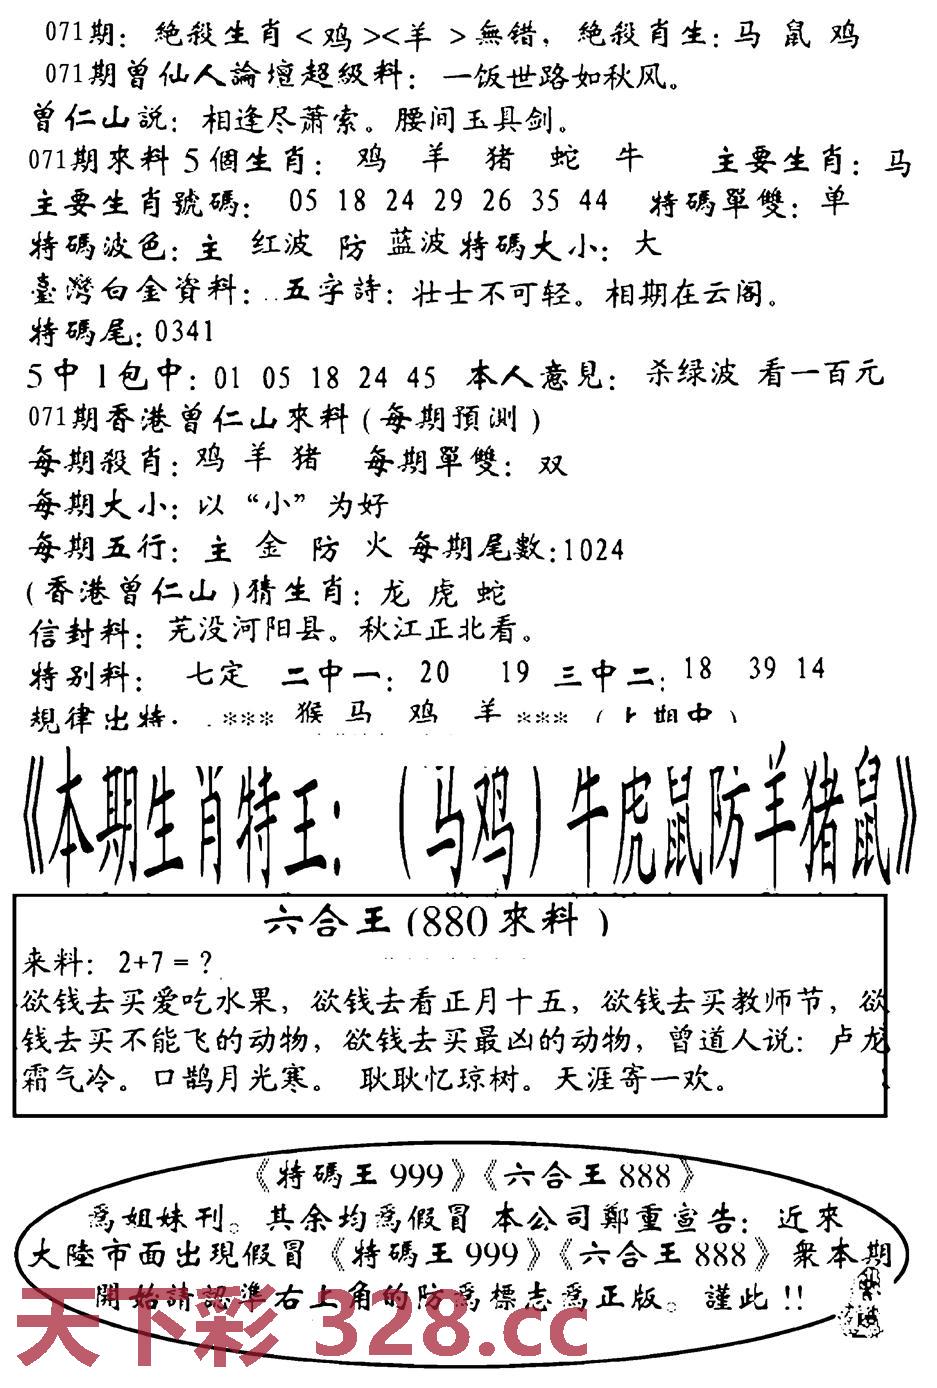 071期: 絶殺生肖<鸡><羊>無错, 絶殺肖生: 马 鼠 鸡
071期曾仙人論壇超級料: 一饭世路如秋风。
曾仁山説: 相逢尽萧索。腰间玉具剑。
071期來料5個生肖: 鸡 羊 猪 蛇 牛 主要生肖: 马
主要生肖號碼: 05 18 24 29 26 35 44 特碼單雙: 单
特碼波色: 主 红波 防 蓝波 特碼大小: 大
臺灣白金資料: 五字詩: 壮士不可轻。相期在云阁。
特碼尾: 0341
5中1包中: 01 05 18 24 45 本人意見: 杀绿波 看一百元
071期香港曾仁山來料(每期預測)
每期殺肖: 鸡 羊 猪 每期單雙: 双
每期大小: 以“小”为好
每期五行: 主 金 防 火 每期尾數:1024
(香港曾仁山)猜生肖: 龙 虎 蛇
信封料: 芜没河阳县。秋江正北看。
特别料: 七定 二中一: 20 19 三中二: 18 39 14
規律出特: *** 猴 马 鸡 羊 *** (上期中)
《本期生肖特王: (马鸡)牛虎鼠防羊猪鼠》
六合王(880來料)
来料: 2+7=?
欲钱去买爱吃水果, 欲钱去看正月十五, 欲钱去买教师节, 欲
钱去买不能飞的动物, 欲钱去买最凶的动物, 曾道人说: 卢龙
霜气冷。口鹊月光寒。 耿耿忆琼树。天涯寄一欢。
《特碼王999》《六合王888》
爲姐妹刊。其余均爲假冒 本公司鄭重宣告: 近來
大陸市面出現假冒《特碼王999》《六合王888》衆本期
開始請認準右上角的防爲標志爲正版。謹此!!
天下彩 328.cc